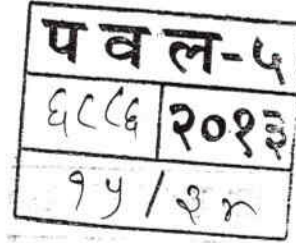 पवल-५
६८८६ २०१३
१५/३४